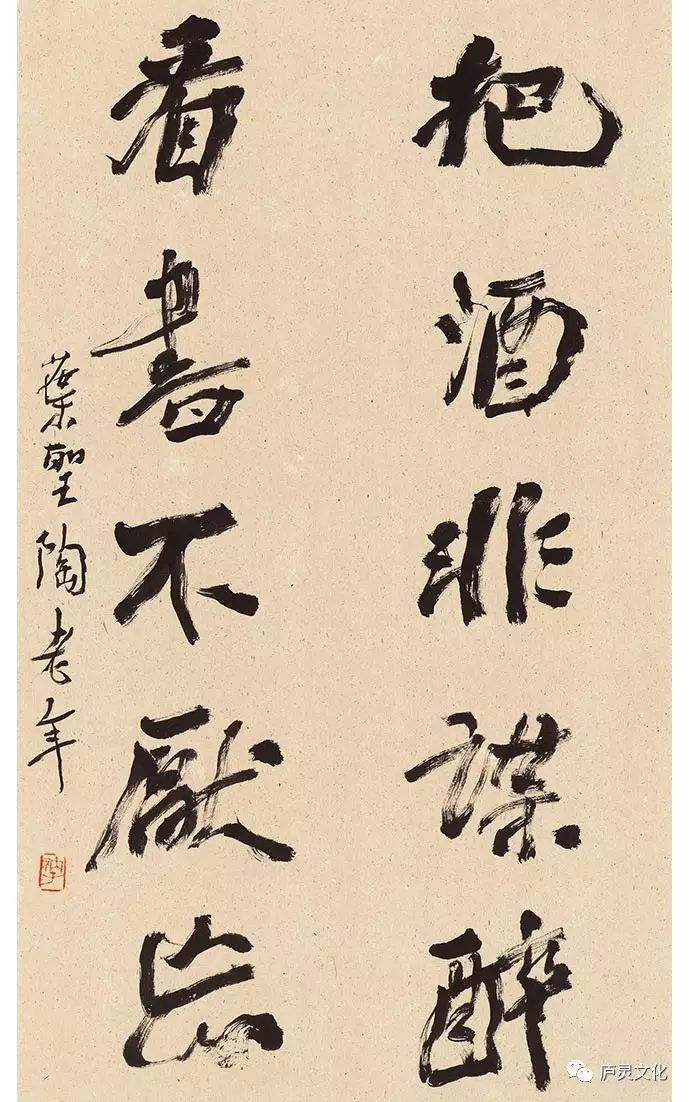 把酒非謀醉
看書不厭忘
葉聖陶老年
庐灵文化